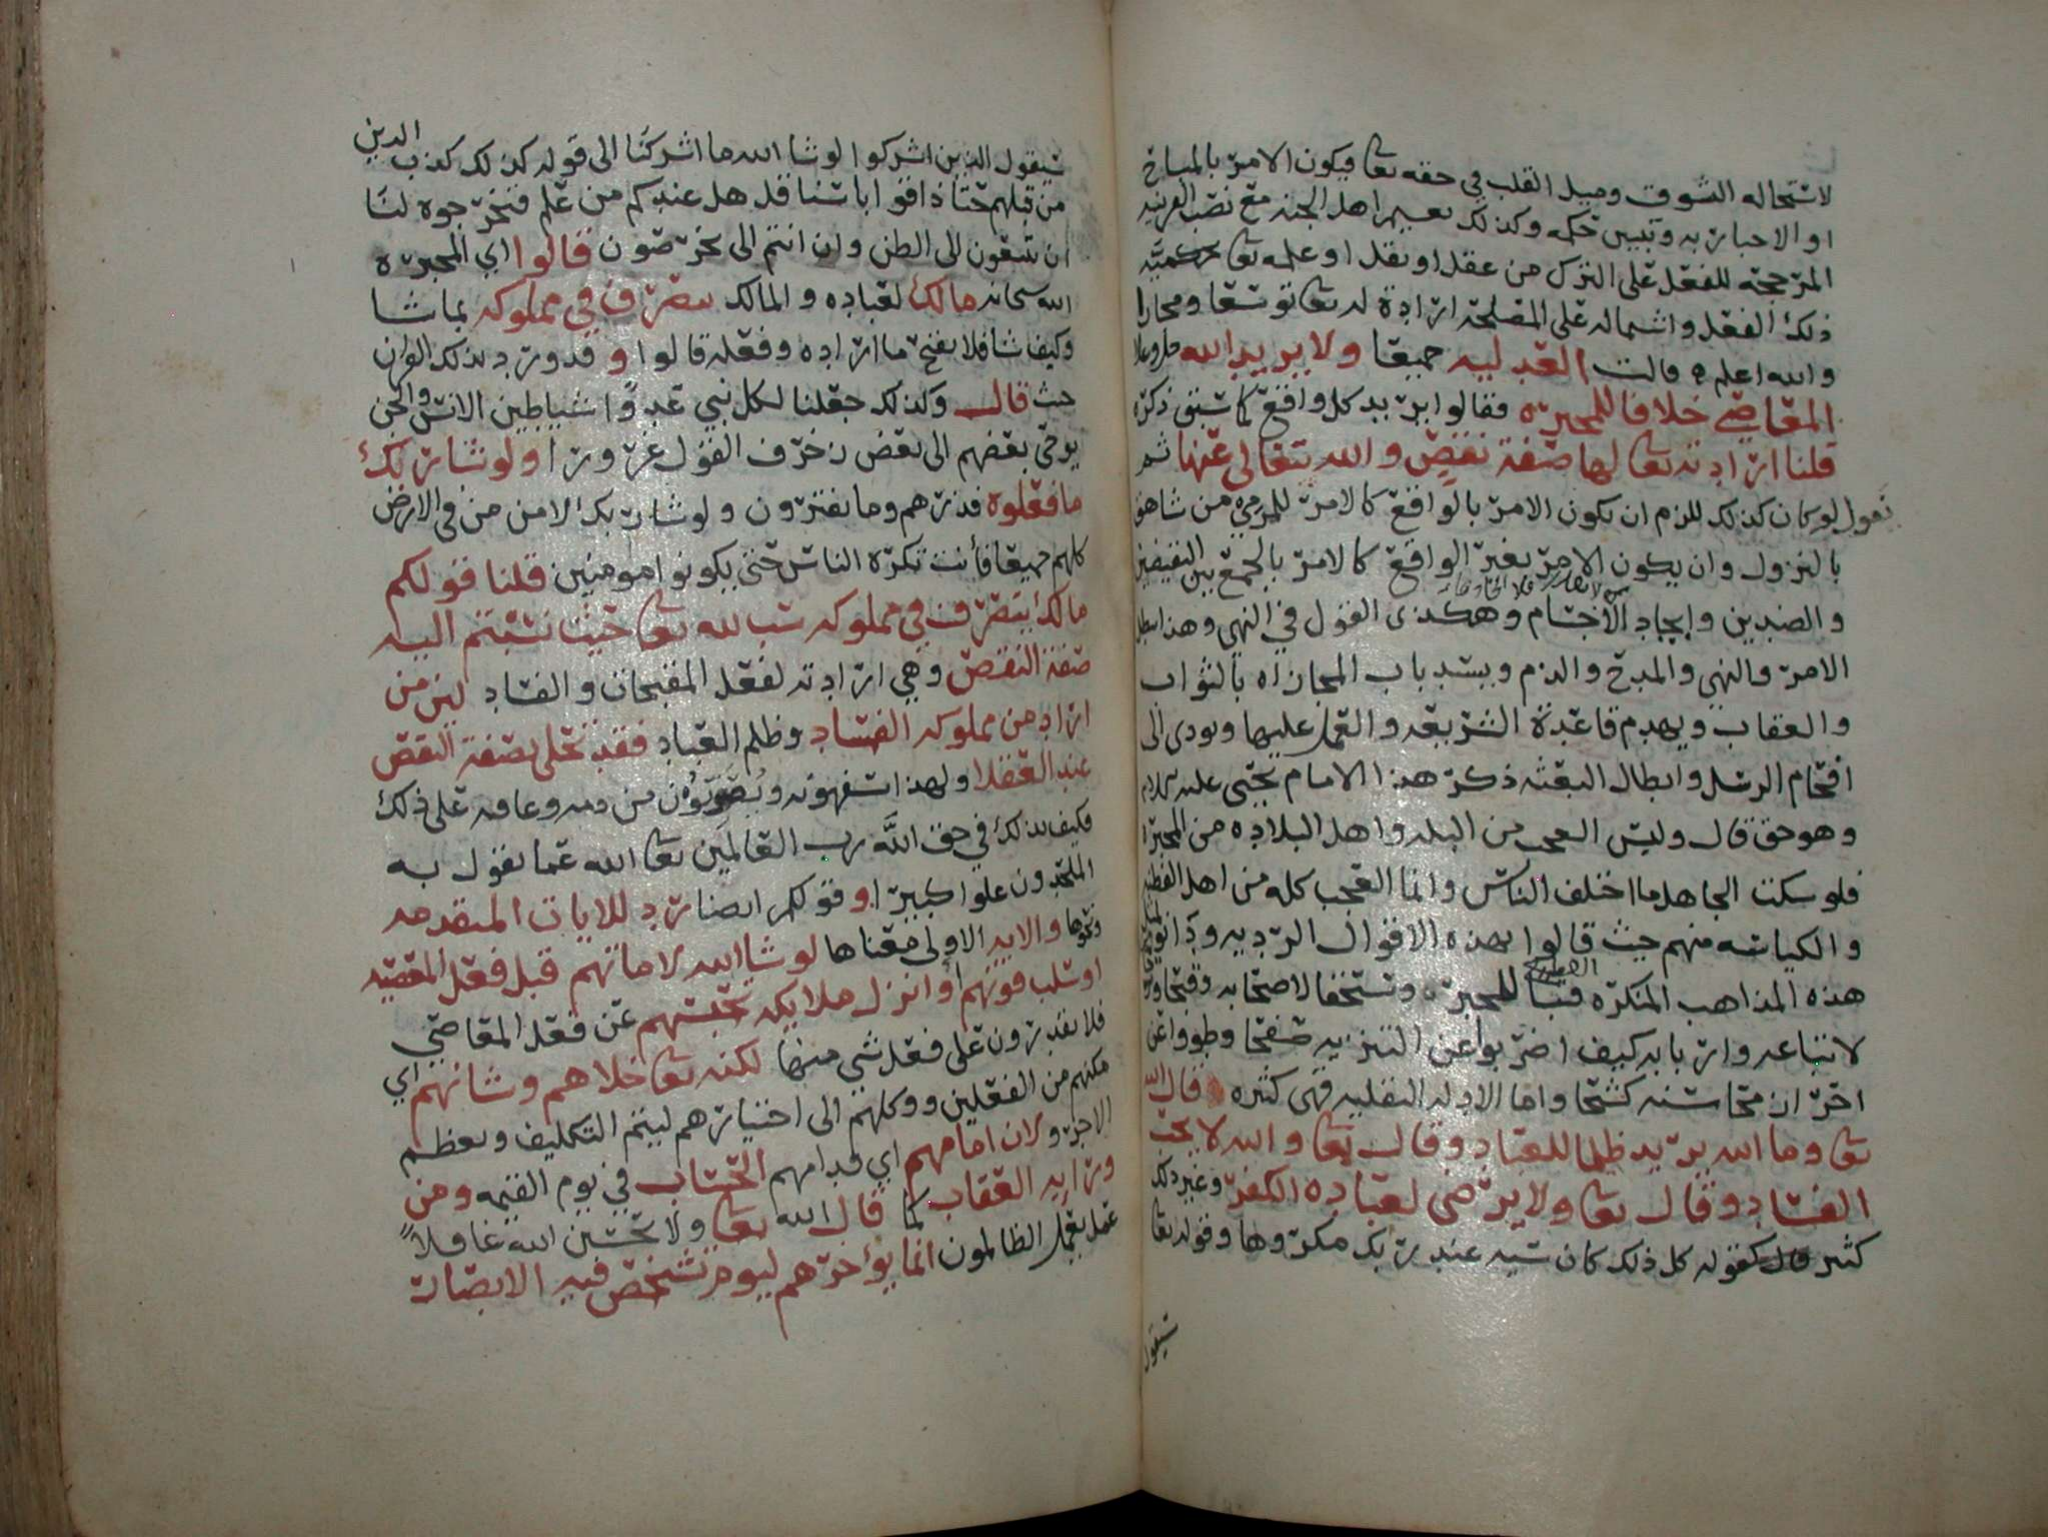 لاستحاله الشوق وميل القلب في حقه تعا ويكون الامر بالمباح
او الاخبار به وتبيين حكمه وكذلك نعيم اهل الجنه مع نصب القرينه
المرجحه للفعل على الترك من عقل او نقل او علمه تعا بحكميه
ذلك الفعل واشتماله على المصلحة ارادة له تعا توسعا ومجازا
والله اعلم قالت العدليه جميعا ولا يريد الله جل وعلا
المعاصي خلافا للمجبره فقالوا يريد كل واقع كما سبق ذكره
قلنا ارادته تعا لها صفة نقص والله يتعالى عنها ثم
نقول لو كان كذلك للزم ان يكون الامر بالواقع كالامر للمرمي من شاهق
بالنزول وان يكون الامر بغير الواقع كالامر بالجمع بين النقيضين
والضدين وايجاد الاجسام وهكذى القول في النهي وهذا يبطل
الامر والنهي والمدح والذم ويسد باب المجازاه بالثواب
والعقاب ويهدم قاعدة الشريعه والعمل عليها ويودى الى
افحام الرسل وابطال البعثه ذكر هذا الامام يحيى عليه السلام
وهو حق قال وليس العجب من البله واهل البلاده من المجبرة
فلو سكت الجاهل ما اختلف الناس وانما العجب كله من اهل الفطنه
والكياسه منهم حيث قالوا بهذه الاقوال الرديه ودانوا بمثل
هذه المذاهب المنكره فتبا للمجبره وسحقا لاصحابه وقبحا
لاتباعه واربابه كيف اضربوا عن التنزيه صفحا وطووا عن
احراز محاسنه كشحا واما الادله النقليه فهي كثيره قال الله
تعا وما الله يريد ظلما للعباد وقال تعا والله لا يحب
الفساد وقال تعا ولا يرضى لعباده الكفر وغير ذلك
كثير كقوله كل ذلك كان سيه عند ربك مكروها وقوله تعا
سيقول
سيقول الذين اشركوا لو شا الله ما اشركنا الى قوله كذلك كذب الذين
من قبلهم حتا ذاقوا باسنا قل هل عندكم من علم فتخرجوه لنا
ان تتبعون الا الظن وان انتم الا تخرصون قالوا اي المجبره
الله سبحانه مالك لعباده والمالك يتصرف في مملوكه بما شا
وكيف شا فلا يقبح ما اراده وفعله قالوا وقد ورد بذلك القران
حيث قال وكذلك جعلنا لكل نبي عدوا شياطين الانس والجن
يوحي بعضهم الى بعض زخرف القول غرورا ولو شا ربك
ما فعلوه فذرهم وما يفترون ولو شا ربك لامن من في الارض
كلهم جميعا فأنت تكره الناس حتى يكونوا مومنين قلنا قولكم
مالك يتصرف في مملوكه سب لله تعا حيث نسبتم اليه
صفة النقص وهي ارادته لفعل المقبحات والفساد ليس من
اراد من مملوكه الفساد وظلم العباد فقد تحلى بصفة النقص
عند العقلا ولهذا يسفهونه ويصوبون من ذمه وعاقبه على ذلك
فكيف بذلك في حق الله رب العالمين تعا الله عما يقول به
الملحدون علوا كبيرا وقولكم ايضا رد للايات المتقدمه
ونحوها والايه الاولى معناها لو شا الله لاماتهم قبل فعل المعصيه
او سلب قوتهم او انزل ملايكه تحبسهم عن فعل المعاصي
فلا يقدرون على فعل شي منها لكنه تعا خلاهم وشانهم اي
مكنهم من الفعلين ووكلهم الى اختيارهم ليتم التكليف ويعظم
الاجر ولان امامهم اي قدامهم الحساب في يوم القيمه ومن
ورايه العقاب كما قال الله تعا ولا تحسبن الله غافلاً
عما يعمل الظالمون انما يؤخرهم ليوم تشخص فيه الابصار